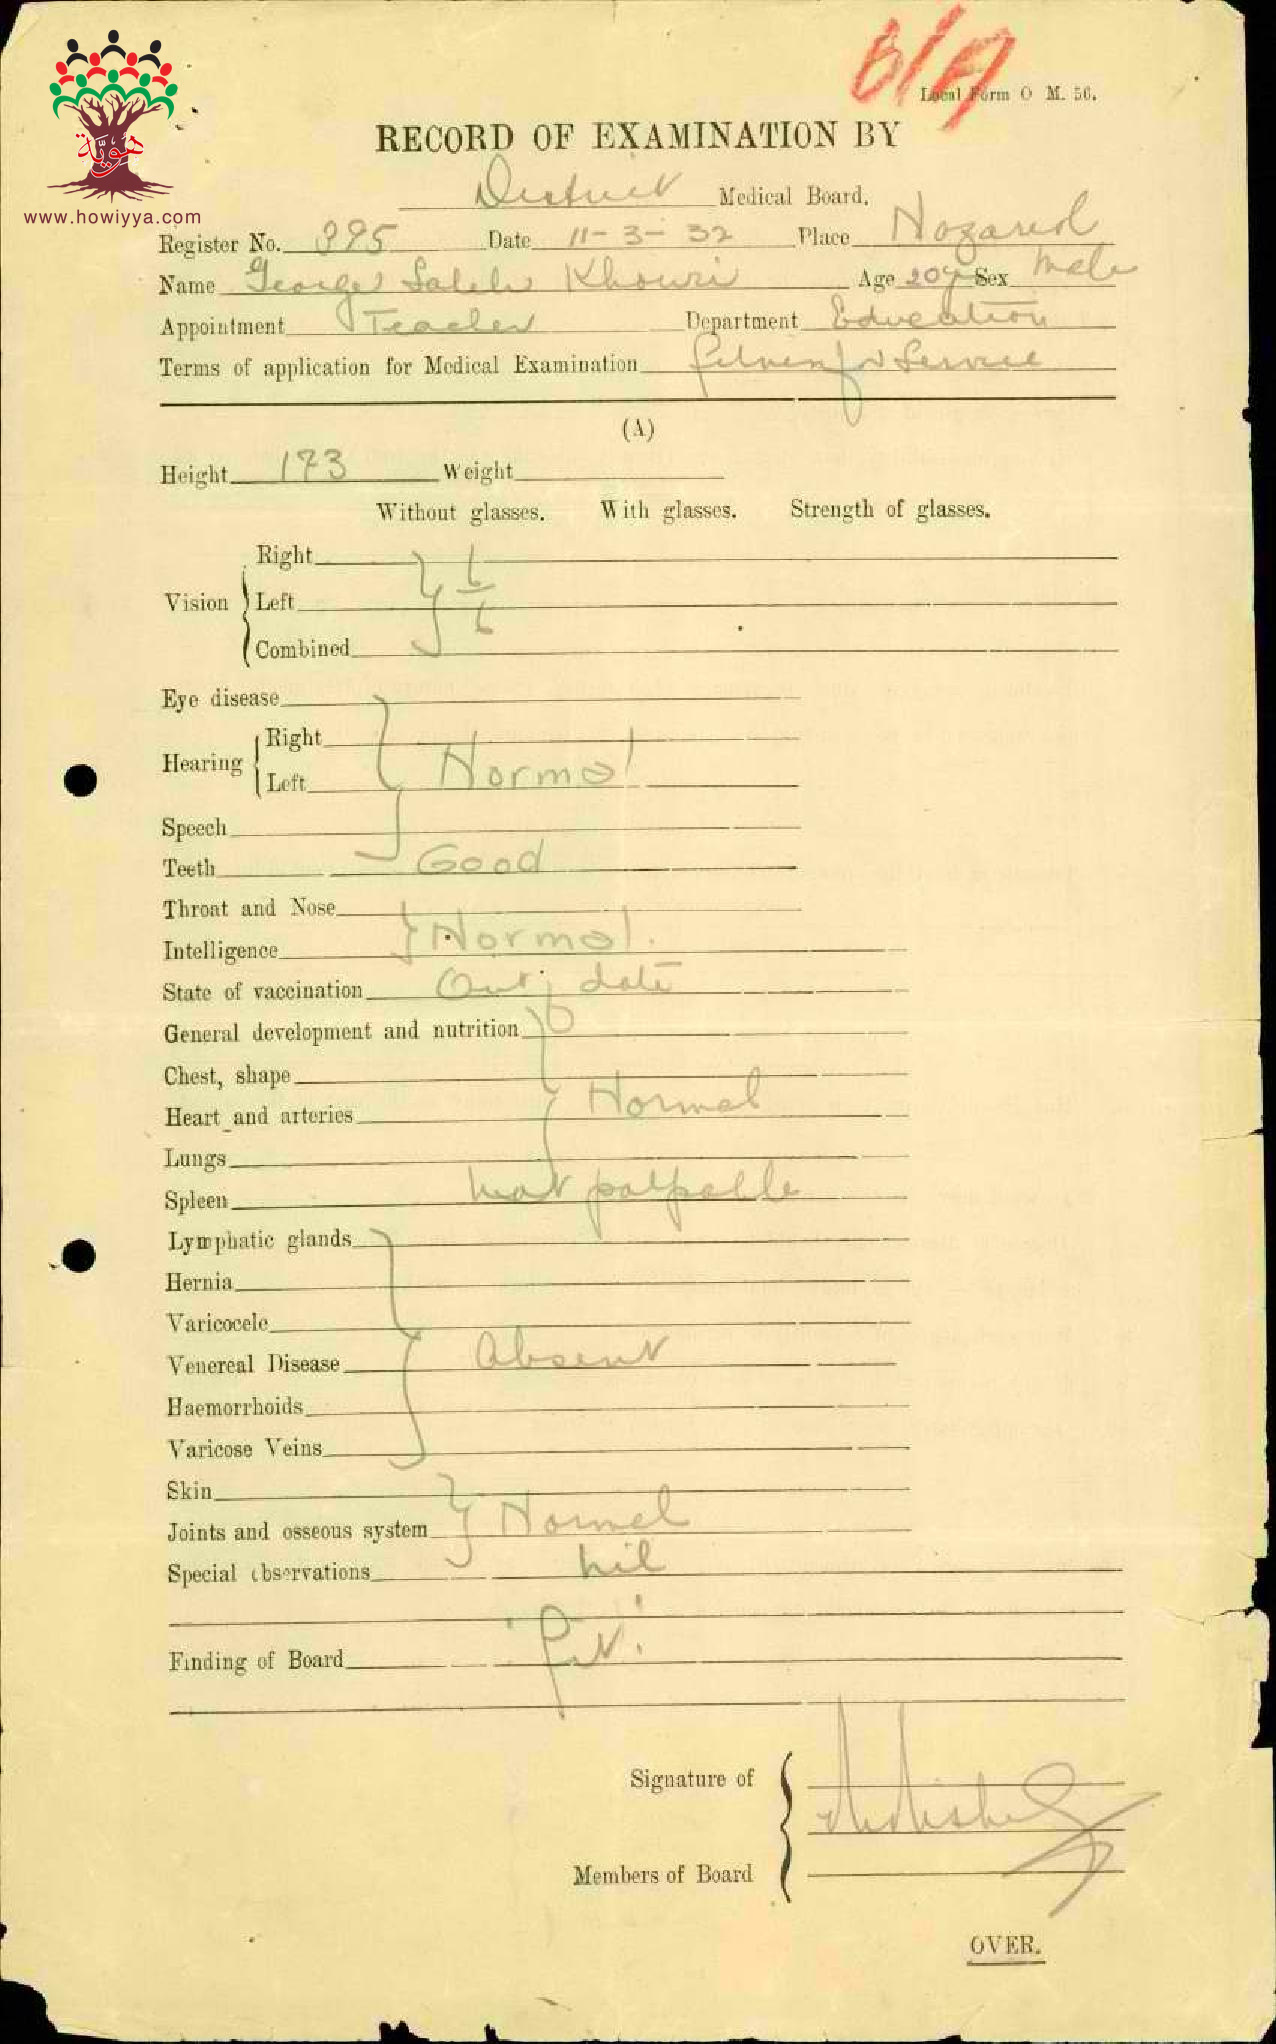 هويّة
www.howiyya.com
Local Form O M. 56.
RECORD OF EXAMINATION BY
District Medical Board.
Register No. 395 Date 11-3-32 Place
Name George Saleh Khouri Age 20y Sex Male
Appointment Teacher Department Education
Terms of application for Medical Examination fitness for Service
(A)
Height 173 Weight
Without glasses. With glasses. Strength of glasses.
Right
Vision Left 6/6
Combined
Eye disease
Right
Hearing Normal
Left
Speech
Teeth Good
Throat and Nose
Intelligence Normal.
State of vaccination Out of date
General development and nutrition
Chest, shape
Heart and arteries Normal
Lungs
Spleen not palpable
Lymphatic glands
Hernia
Varicocele
Venereal Disease Absent
Haemorrhoids
Varicose Veins
Skin
Joints and osseous system Normal
Special observations nil
Finding of Board "Fit"
Signature of
Members of Board
OVER.